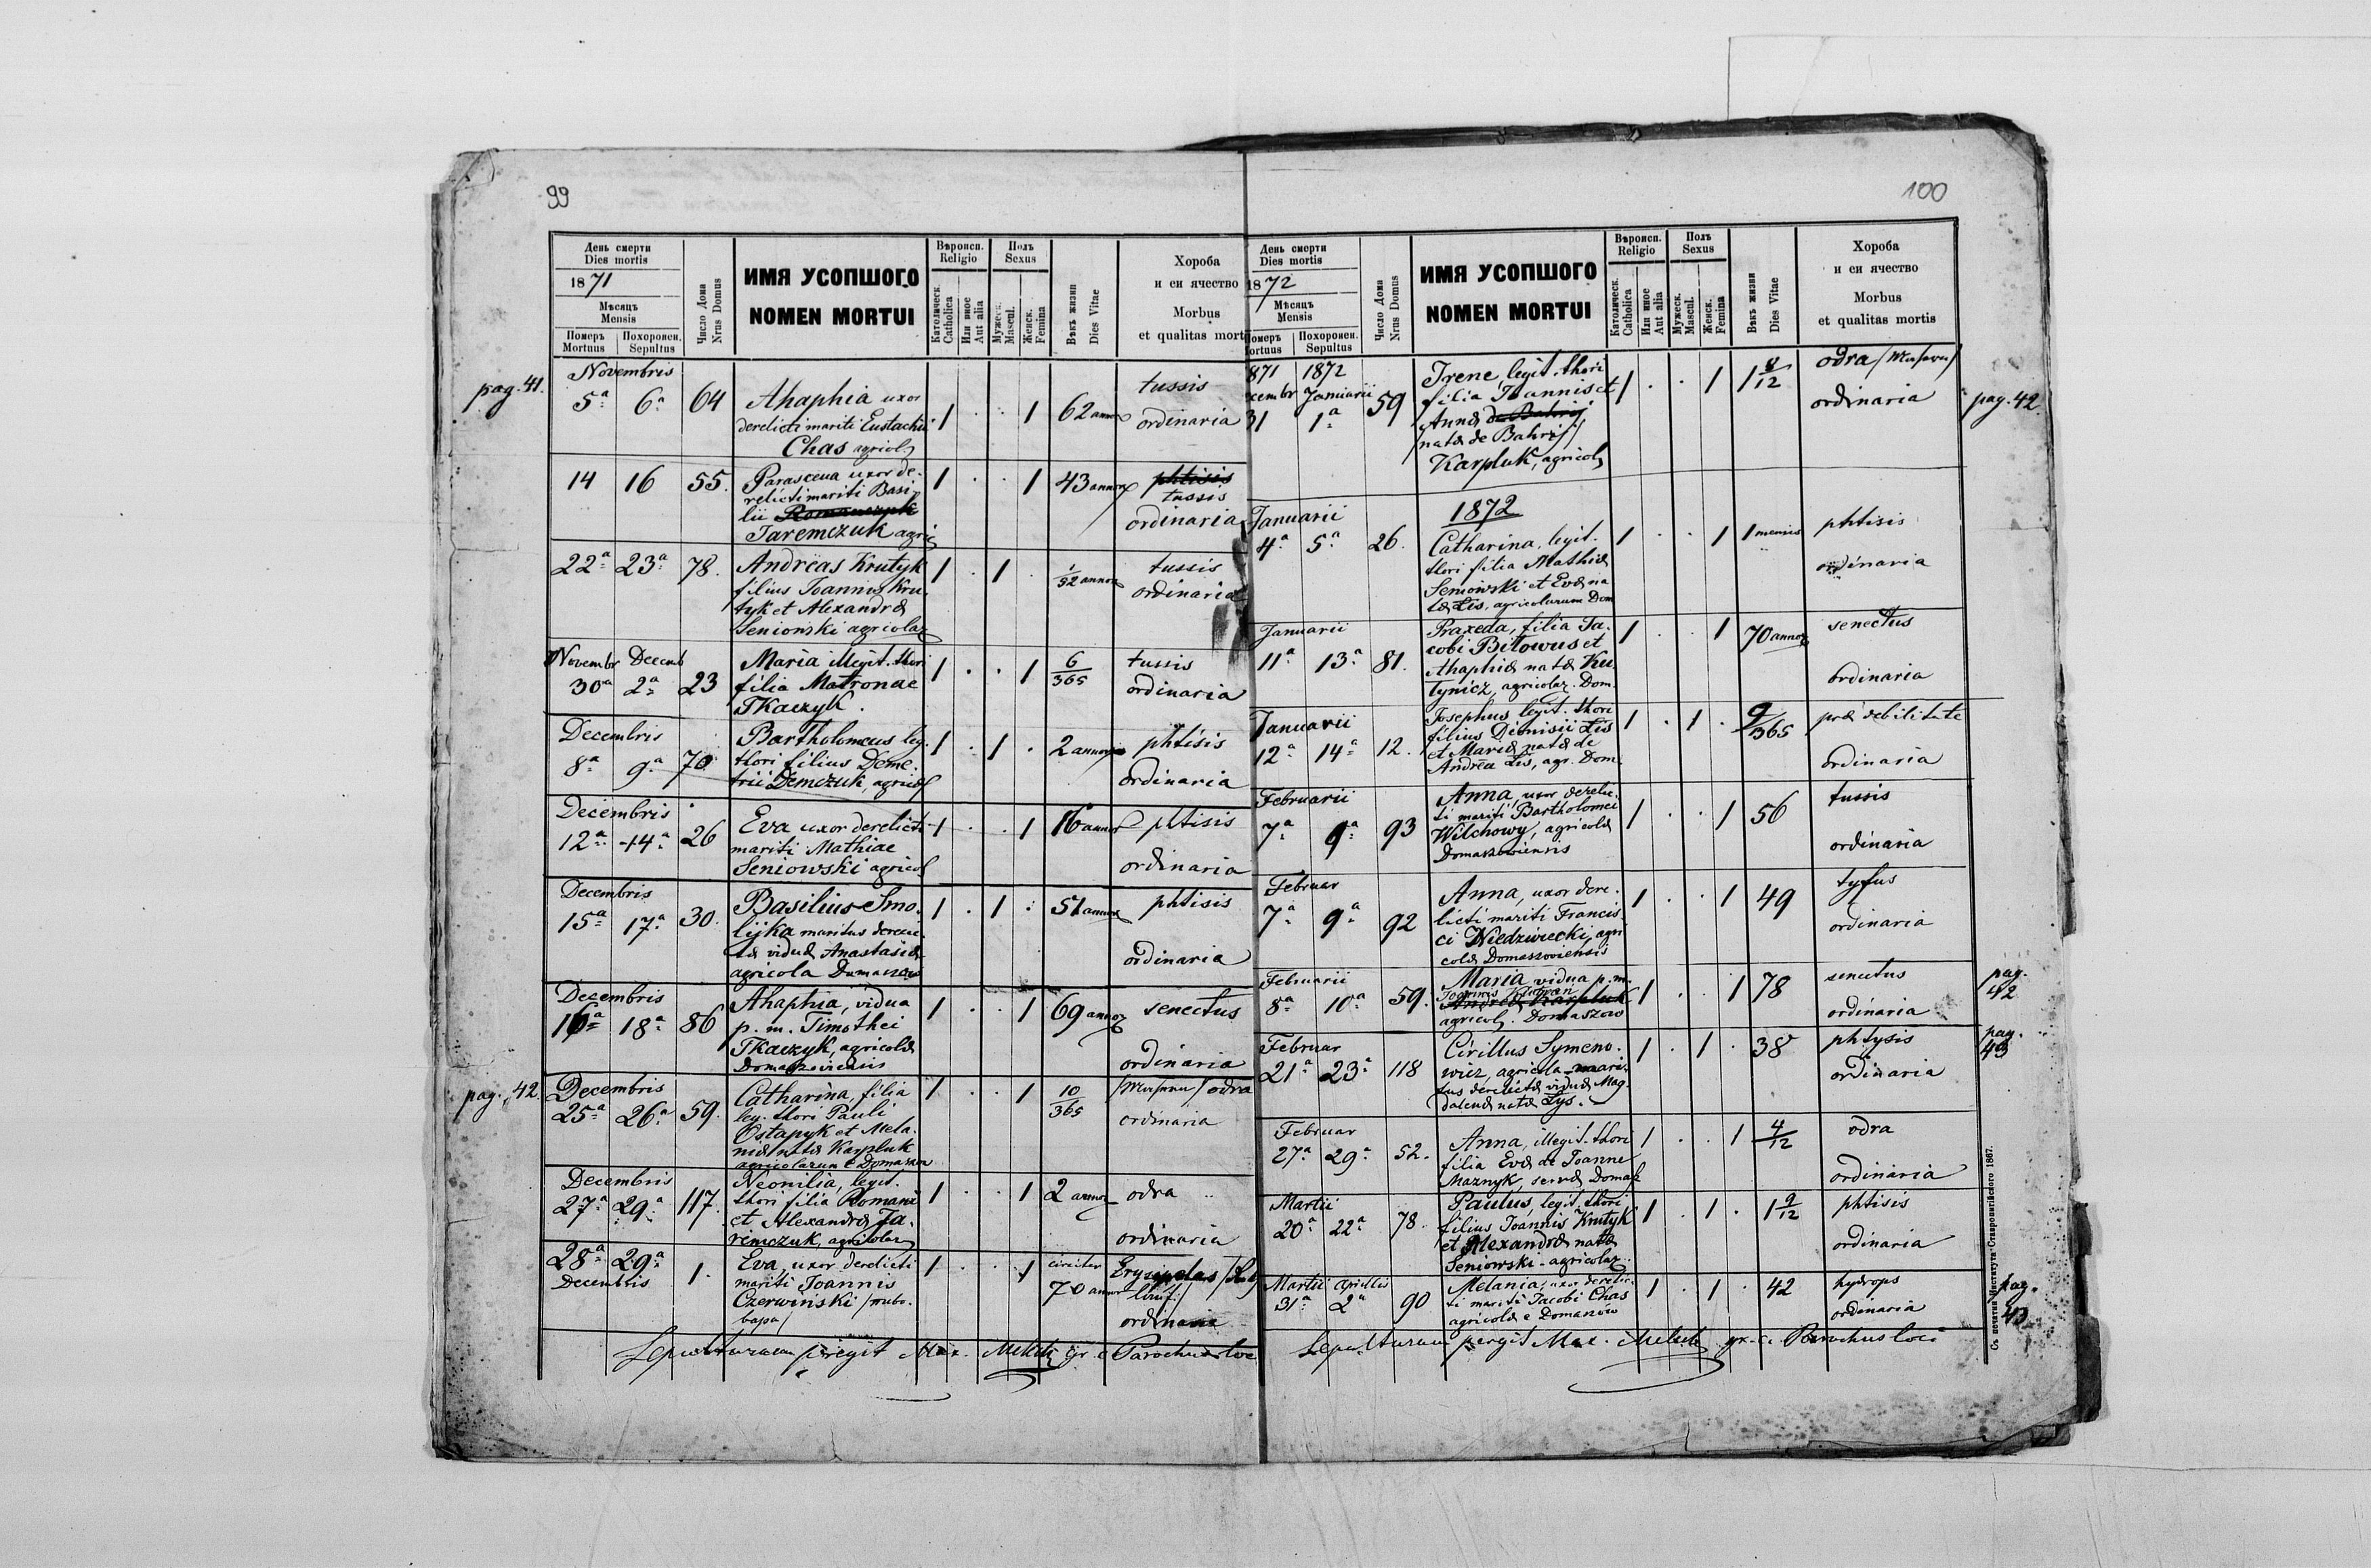 99
День смерти
Dies mortis
1871
Мѣсяцъ
Mensis
Померъ
Mortuus
Похоронен.
Sepultus
Число Дома
Nrus Domus
ИМЯ УСОПШОГО
NOMEN MORTUI
Вѣроисп.
Religio
Католическ.
Catholica
Или иное
Aut alia
Полъ
Sexus
Мужеск.
Mascul.
Женск.
Femina
Вѣкъ жизни
Dies Vitae
Хороба
и еи ячество
Morbus
et qualitas mort
pag. 41.
Novembris
5ª 6ª 64 Ahaphia uxor 1 . . 1 62 annor tussis
derelicti mariti Eustachii ordinaria
Chas agricol
14 16 55. Parasceva uxor de- 1 . . 1 43 annor phtisis
relicti mariti Basi- tussis
lii Romanczuk ordinaria
Jaremczuk agric
22ª 23ª 78. Andreas Krutyk 1 . 1 . 1/52 annor tussis
filius Joannis Kru- ordinaria
tyk et Alexandræ
Seniowski agricolar
Novembr Decemb
30ª 2ª 23 Maria illegit. thori 1 . . 1 6/365 tussis
filia Matronae ordinaria
Tkaczyk.
Decembris
8ª 9ª 70 Bartholomeus leg. 1 . 1 . 2 annor phtisis
thori filius Deme- ordinaria
trii Demczuk, agricol
Decembris
12ª 14ª 26 Eva uxor derelicti 1 . . 1 16 annor phtisis
mariti Mathiae ordinaria
Seniowski agricol
Decembris
15ª 17ª 30. Basilius Smo- 1 . 1 . 51 annor phtisis
lijka maritus derelic-
tæ viduæ Anastasiæ ordinaria
agricola Domaszow
Decembris
16ª 18ª 86 Ahaphia, vidua 1 . . 1 69 annor senectus
p. m. Timothei
Tkaczyk, agricolæ ordinaria
Domaszoviensis
pag. 42.
Decembris
25ª 26ª 59. Catharina, filia 1 . . 1 10/365 odra
leg. thori Pauli ordinaria
Ostapyk et Mela-
niæ natæ Karpluk
agricolarum e Domaszow
Decembris
27ª 29ª 117. Neonilia, legit. 1 . . 1 2 annor odra
thori filia Romani
et Alexandræ Ja- ordinaria
remczuk, agricolar
28ª 29ª 1. Eva, uxor derelicti 1 . . 1 circiter 70 annor Erysipelas
Decembris mariti Joannis
Czerwiński ordinaria
Sepulturam peregit Max. gr. c. Parochus loci
100
День смерти
Dies mortis
1872
Мѣсяцъ
Mensis
Померъ
ortuus
Похоронен.
Sepultus
Число Дома
Nrus Domus
ИМЯ УСОПШОГО
NOMEN MORTUI
Вѣроисп.
Religio
Католическ.
Catholica
Или иное
Aut alia
Полъ
Sexus
Мужеск.
Mascul.
Женск.
Femina
Вѣкъ жизни
Dies Vitae
Хороба
и еи ячество
Morbus
et qualitas mortis
871 1872 Irene legit. thori 1 . . 1 1 8/12 odra
cembr Januarii filia Joannis et ordinaria pag. 42.
31 1ª 59 Annæ de Bahrij
natæ de Bahrij
Karpluk, agricol
1872
Januarii
4ª 5ª 26. Catharina, legit. 1 . . 1 1 mensis phtisis
thori filia Mathiæ ordinaria
Seniowski et Evæ na
tæ Lis, agricolarum Dom
Januarii
11ª 13ª 81. Praxeda, filia Ja- 1 . . 1 70 annor senectus
cobi Bitowus et
Ahaphiæ natæ Ku- ordinaria
tynicz, agricolar. Dom.
Januarii
12ª 14ª 12. Josephus legit. thori 1 . 1 . 9/365 præ debilitate
filius Dionisii Lis
et Mariæ natæ de ordinaria
Andrea Lis, agr. Dom.
Februarii
7ª 9ª 93 Anna, uxor derelic- 1 . . 1 56 tussis
ti mariti Bartholomei
Wilchowy, agricolæ ordinaria
Domaszoviensis
Februar
7ª 9ª 92 Anna, uxor dere- 1 . . 1 49 tyfus
licti mariti Francis-
ci Niedzwiecki, agri ordinaria
colæ Domaszoviensis
Februarii
8ª 10ª 59. Maria vidua p. m. 1 . . 1 78 senectus pag. 42
Joannis
Andreæ Karpluk ordinaria
agricol. Domaszow
Februar
21ª 23ª 118 Cirillus Symeno- 1 . 1 . 38 phtysis pag. 43
wicz, agricola mari- ordinaria
tus derelictæ viduæ Mag-
dalenæ natæ Lys.
Februar
27ª 29ª 52. Anna, illegit. thori 1 . . 1 4/12 odra
filia Evæ de Joanne
Maznyk, servæ Domasz ordinaria
Martii
20ª 22ª 78. Paulus, legit. thori 1 . 1 . 1 9/12 phtisis
filius Joannis Krutyk
et Alexandræ natæ ordinaria
Seniowski - agricolar.
Martii Aprilis
31ª 2ª 90 Melania, uxor derelic- 1 . 1 . 42 hydrops pag. 43
ti mariti Jacobi Chas ordinaria
agricolæ e Domaszów
Sepulturam peregit Max. gr. c. Parochus loci
Съ печатни Института Ставропигійского 1867.